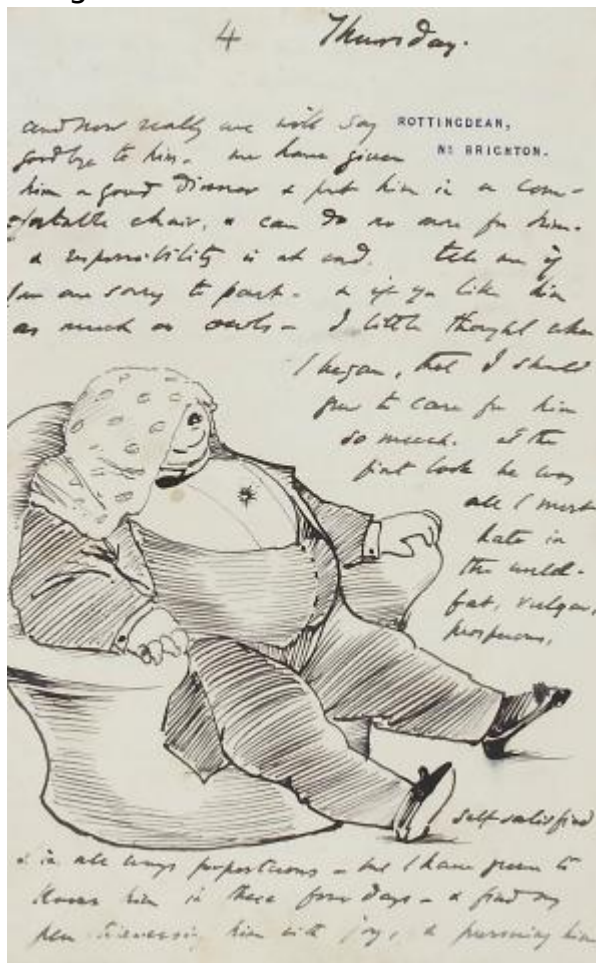 4 Thursday.
and now really we will say ROTTINGDEAN,
goodbye to him. we have given Nr BRIGHTON.
him a good Dinner & put him in a com-
fortable chair, & can do no more for him.
& responsibility is at end. tell me if
you are sorry to part - & if you like him
as much as owls - I little thought when
I began, that I should
grow to care for him
so much. at the
first look he was
all I most
hate in
the world -
fat, vulgar,
prosperous,
self satisfied
& in all ways preposterous - but I have grown to
know him in these four days - & find my
pen him with joy, & pursuing him